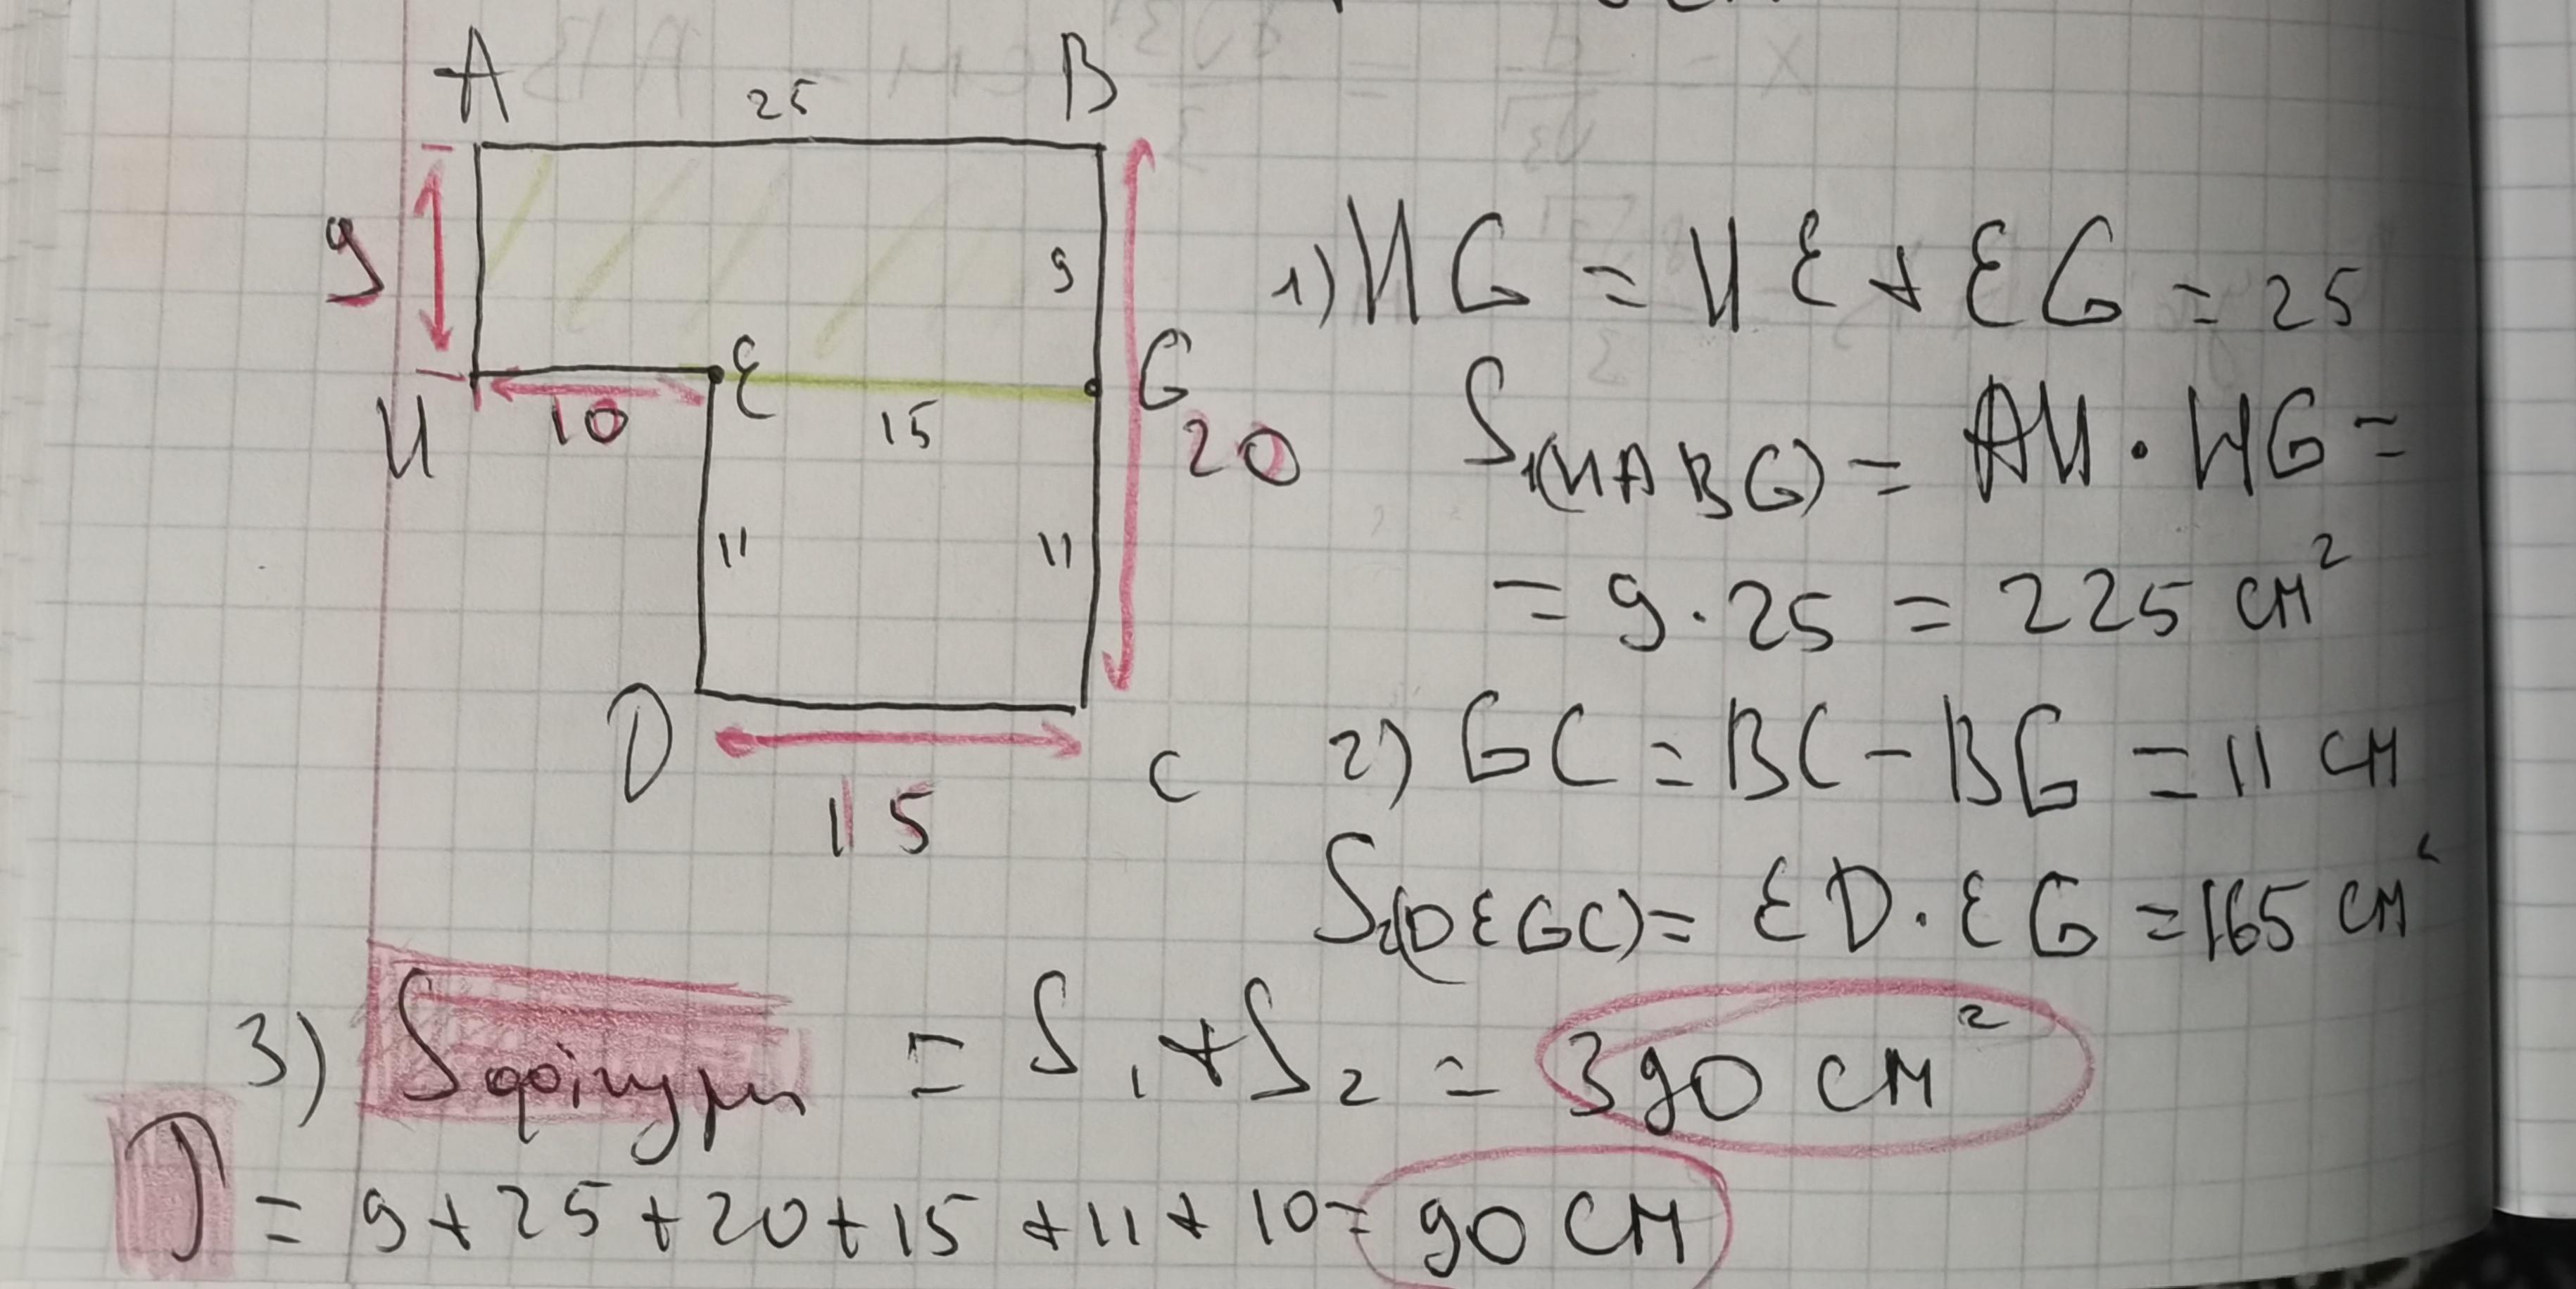 A 25 B
9
9
И
10
E
15
G
20
11
11
D
15
C
1) ИG = ИE + EG = 25
S₁(ИABG) = AИ · ИG =
= 9 · 25 = 225 см²
2) GC = BC - BG = 11 см
S₂(DEGC) = ED · EG = 165 см²
3) Sфігури = S₁ + S₂ = 390 см²
P = 9 + 25 + 20 + 15 + 11 + 10 = 90 см